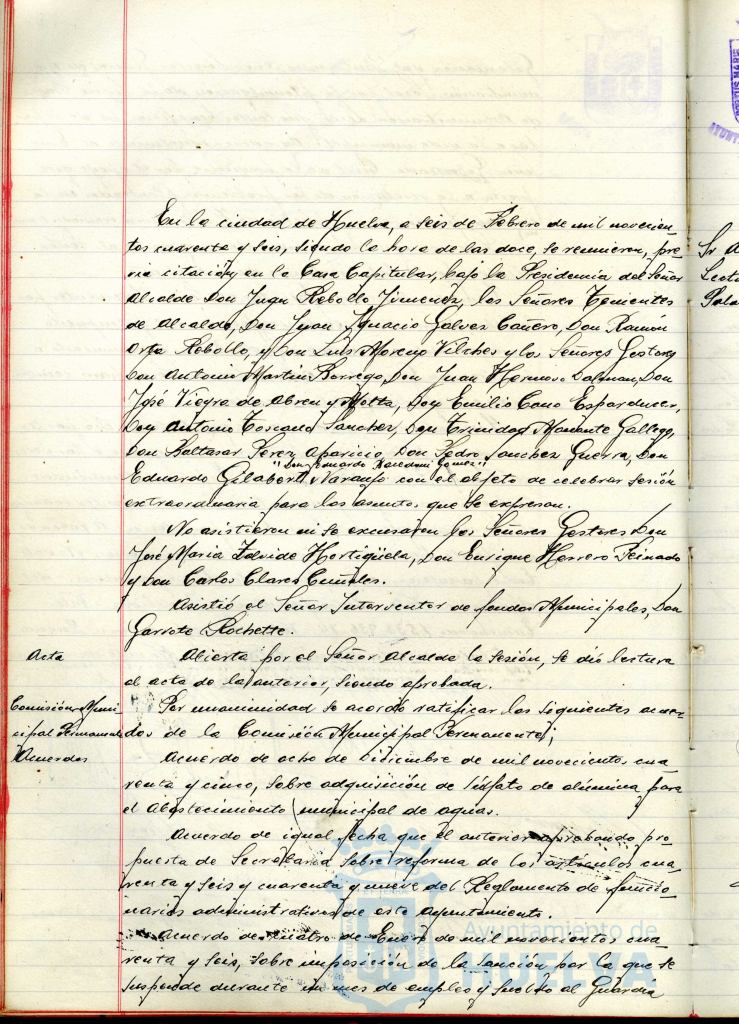 En la ciudad de Huelva, a seis de Febrero de mil novecien-
tos cuarenta y seis, siendo la hora de las doce, se reunieron, pre-
via citación, en la Casa Capitular, bajo la Presidencia del Señor
Alcalde Don Juan Rebollo Jimenez, los Señores Tenientes
de Alcalde, Don Juan Ignacio Galvez Cañero, Don Ramón
Orta Rebollo, y Don Luis Moreno Vilches y los Señores Gestores
Don Antonio Martin Borrego, Don Juan Hermoso Dalman, Don
José Vieyra de Abreu y Motta, Don Emilio Cano Esparducer,
Don Antonio Toscano Sanchez, Don Trinidad Gallego,
Don Baltasar Perez Aparicio, Don Pedro Sanchez Guerra, Don
"Don Eduardo Gomez"
Eduardo Gilabert Naranjo con el objeto de celebrar sesión
extraordinaria para los asuntos que se expresan.
No asistieron ni se excusaron los Señores Gestores Don
José Maria Hortigüela, Don Enrique Herrero Peinado
y Don Carlos Clares
Asistió el Señor Interventor de fondos Municipales, Don
Garrote Rochette.
Acta
Abierta por el Señor Alcalde la Sesión, se dió lectura
al acta de la anterior, siendo aprobada.
Comisión Muni-
cipal Permanente
Acuerdos
Por unanimidad se acordo ratificar los siguientes acuer-
dos de la Comisión Municipal Permanente;
Acuerdo de ocho de Diciembre de mil novecientos cua-
renta y cinco, sobre adquisición de sulfato de alúmina para
el Abastecimiento municipal de aguas.
Acuerdo de igual fecha que el anterior aprobando pro-
puesta de Secretaria sobre reforma de los artículos cua-
renta y seis y cuarenta y nueve del Reglamento de funcio-
narios administrativos de este Ayuntamiento.
Acuerdo de cuatro de Enero de mil novecientos cua-
renta y seis, sobre imposición de la sanción, por la que se
suspende durante un mes de empleo y sueldo al Guardia
Ayuntamiento de
HUELVA
Sr A
Lectu
Pala